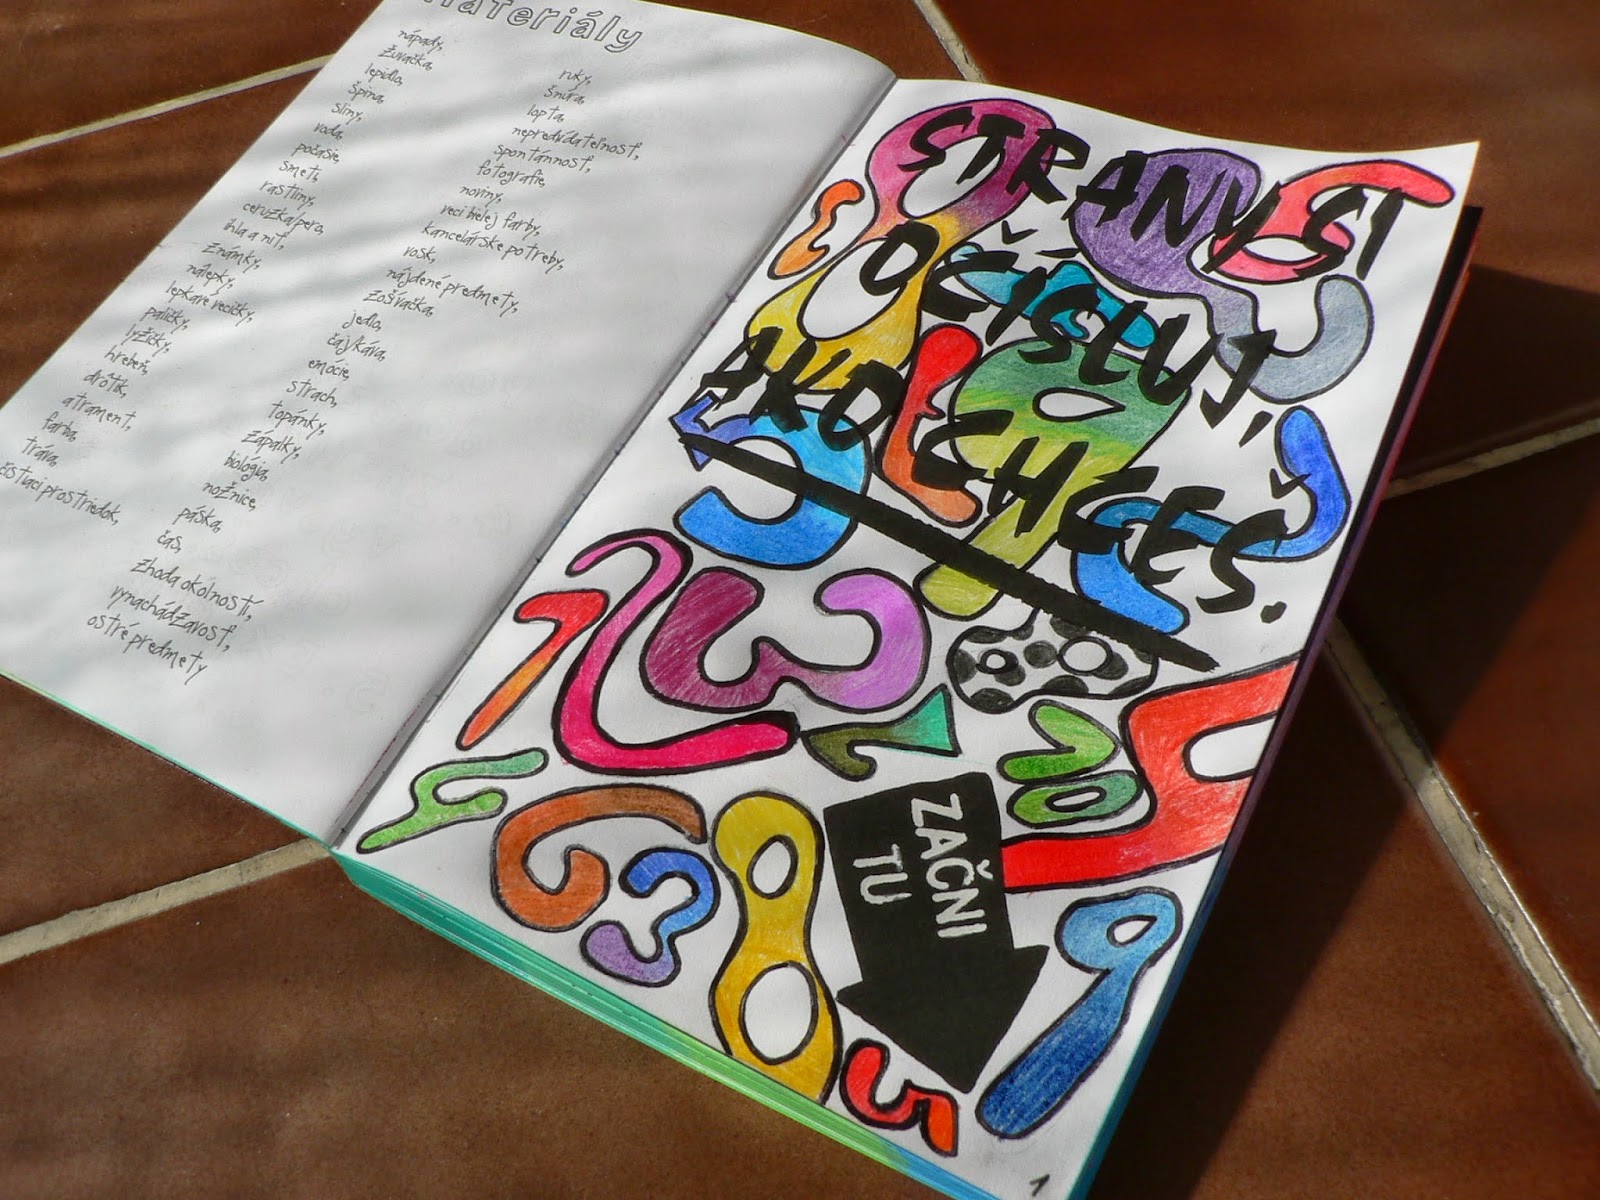 materiály
nápady,
žuvačka,
lepidlo,
špina,
sliny,
voda,
počasie,
smeti,
rastliny,
ceruzka/pero,
ihla a niť,
známky,
nálepky,
lepkavé vecičky,
paličky,
lyžičky,
hrebeň,
drôtik,
atrament,
farba,
tráva,
čistiaci prostriedok,
ruky,
šnúra,
lopta,
nepredvídateľnosť,
spontánnosť,
fotografie,
noviny,
veci bielej farby,
kancelárske potreby,
vosk,
nájdené predmety,
zošívačka,
jedlo,
čaj/káva,
emócie,
strach,
topánky,
zápalky,
biológia,
nožnice,
páska,
čas,
zhoda okolností,
vynachádzavosť,
ostré predmety
STRANY SI
OČÍSLUJ,
AKO CHCEŠ.
ZAČNI
TU
1